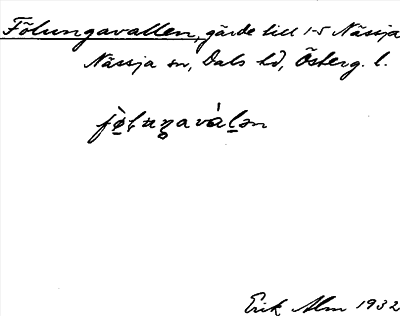 Fölungavallen, gärde till 1-5 Nässja
Nässja sn, Dals hd, Österg. l.
Erik Alm 1932